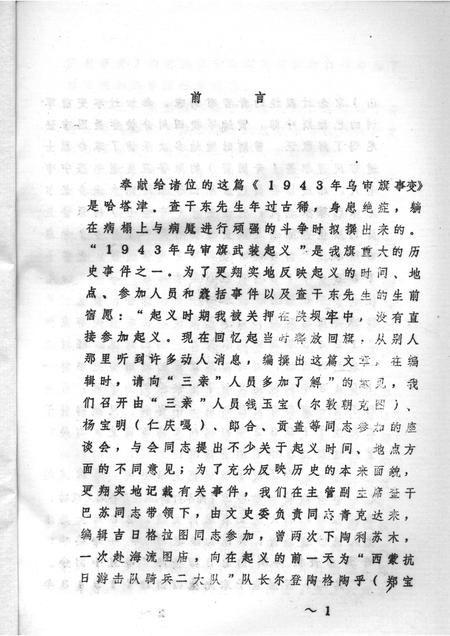 前 言
奉献给诸位的这篇《1943年乌审旗事变》
是哈塔津．查干东先生年过古稀，身患绝症，躺
在病榻上与病魔进行顽强的斗争时拟撰出来的。
“1943年乌审旗武装起义”是我旗重大的历
史事件之一。为了更翔实地反映起义的时间、地
点、参加人员和囊括事件以及查干东先生的生前
宿愿：“起义时期我被关押在陕坝牢中，没有直
接参加起义。现在回忆起当时释放回旗，从别人
那里听到许多动人消息，编撰出这篇文章，在编
辑时，请向“三亲”人员多加了解”的意见，我
们召开由“三亲”人员钱玉宝（尔敦朝克图）、
杨宝明（仁庆嘎）、郎合、贡盖等同志参加的座
谈会，与会同志提出不少关于起义时间、地点方
面的不同意见；为了充分反映历史的本来面貌，
更翔实地记载有关事件，我们在主管副主席
巴苏同志带领下，由文史委负责同志青克达来，
编辑吉日格拉图同志参加，曾两次下陶利苏木，
一次赴海流图庙，向在起义的前一天为“西蒙抗
日游击队骑兵二大队”队长尔登陶格陶乎（郑宝
～ 1